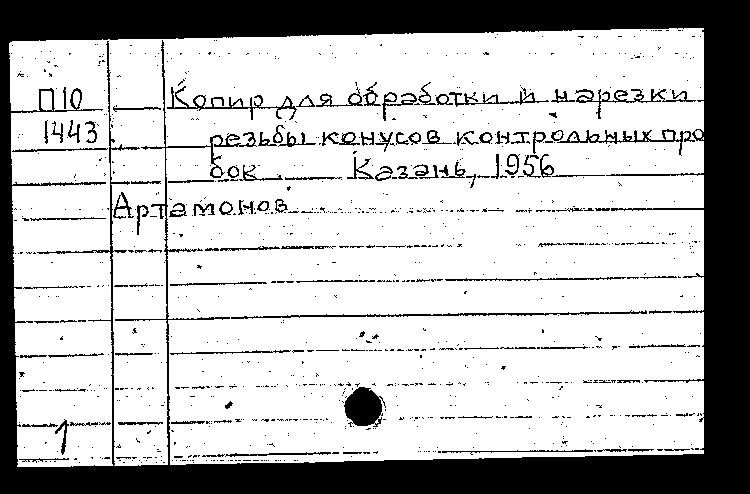 П10 Копир для обработки и нарезки
1443 резьбы конусов контрольных про
бок Казань, 1956
Артамонов
1